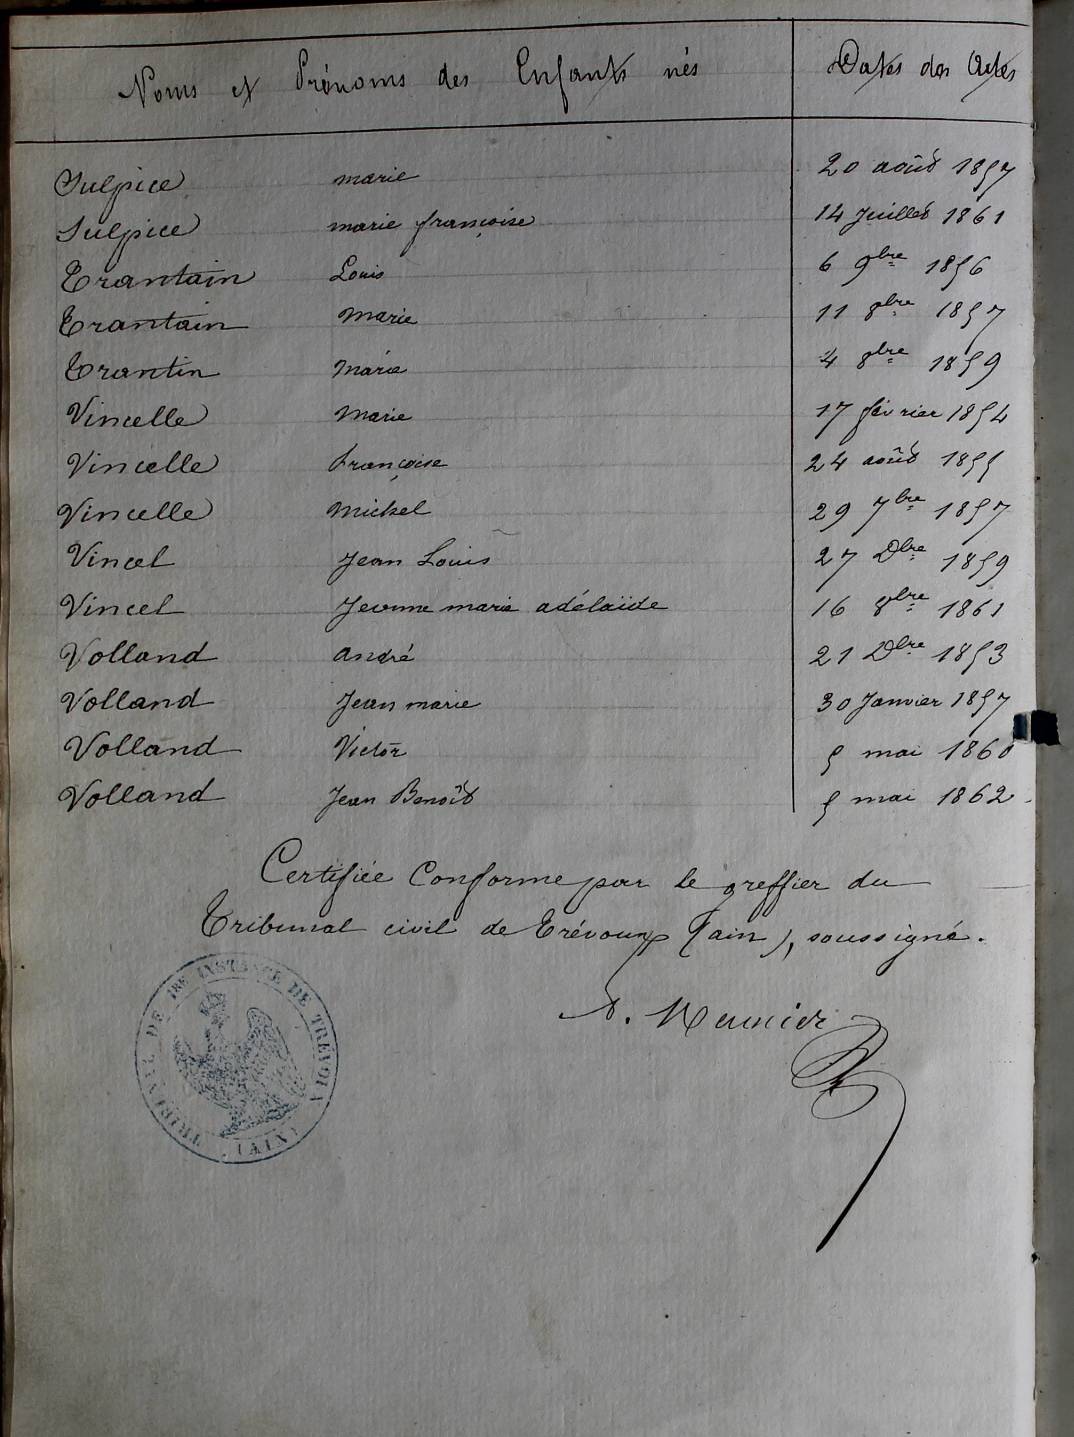 Noms et Prénoms des Enfants nés Dates des Actes
Sulpice marie 20 août 1857
Sulpice marie françoise 14 Juillet 1861
Trantain Louis 6 9bre 1856
Trantain Marie 11 8bre 1857
Trantin Marie 4 8bre 1859
Vincelle Marie 17 février 1854
Vincelle françoise 24 août 1855
Vincelle Michel 29 7bre 1857
Vincel Jean Louis 27 Dbre 1859
Vincel Jeanne marie adélaïde 16 8bre 1861
Volland André 21 Dbre 1853
Volland Jean marie 30 Janvier 1857
Volland Victor 5 mai 1860
Volland Jean Benoît 5 mai 1862
Certifiée Conforme par le greffier du
Tribunal civil de Trévoux (ain), soussigné.
Meunier
TRIBUNAL DE 1RE INSTANCE DE TRÉVOUX
(AIN)